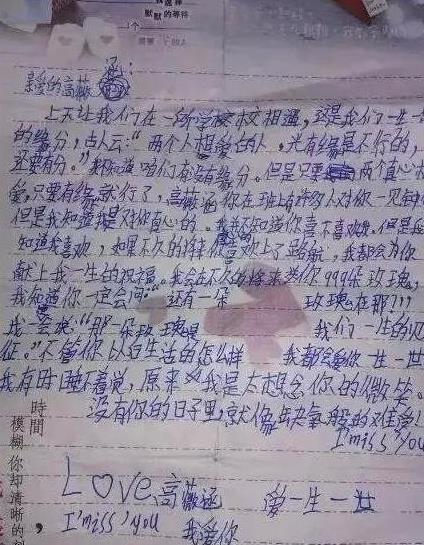 默默的等待
1个
亲爱的高薇涵:
上天让我们在一所学校相遇,这是我们一生一
的缘分,古人云:"两个人想爱的人,光有缘是不行的,
还要有分。"我知道咱们有没有缘分。但是只要两个真心相
爱,只要有缘就行了,高薇涵你在班上有许多人对你一见钟
但是我知道我是对你真心的。我不知道你喜不喜欢我。但是
知道我喜欢,如果不久的将来你喜欢上了路航,我都会为你
献上我一生的祝福。我会在不久的将来为你999朵玫瑰,
我知道你一定会问:"还有一朵玫瑰在那?!!
我会说:"那一朵玫瑰是我们一生的见
征。"不管你以后生活的怎么样 我都会爱你一世一世
我有时睡不着觉,原来是我是太想念你的微笑。
没有你的日子里,就像缺氧般的难受!
I'miss You
Love 高薇涵 爱一生一世
I'miss'you 我爱你
時間,
模糊你却清晰的